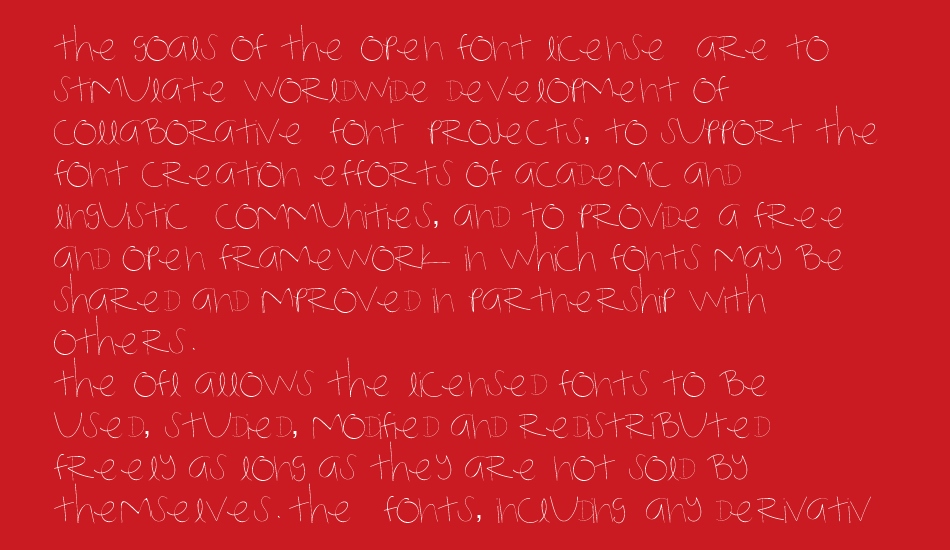 the goals of the open font license are to
stimulate worldwide development of
collaborative font projects, to support the
font creation efforts of academic and
linguistic communities, and to provide a free
and open framework in which fonts may be
shared and improved in partnership with
others.
the ofl allows the licensed fonts to be
used, studied, modified and redistributed
freely as long as they are not sold by
themselves. the fonts, including any derivativ